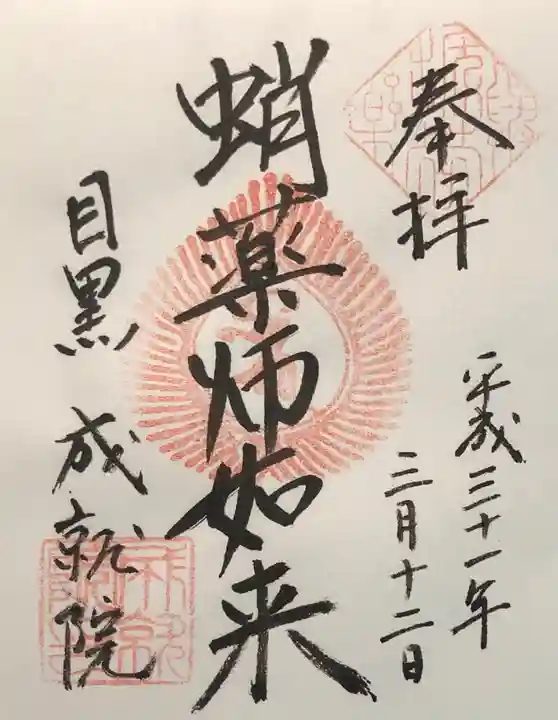 奉拝
平成三十一年
三月十二日
蛸薬師如来
目黒 成就院